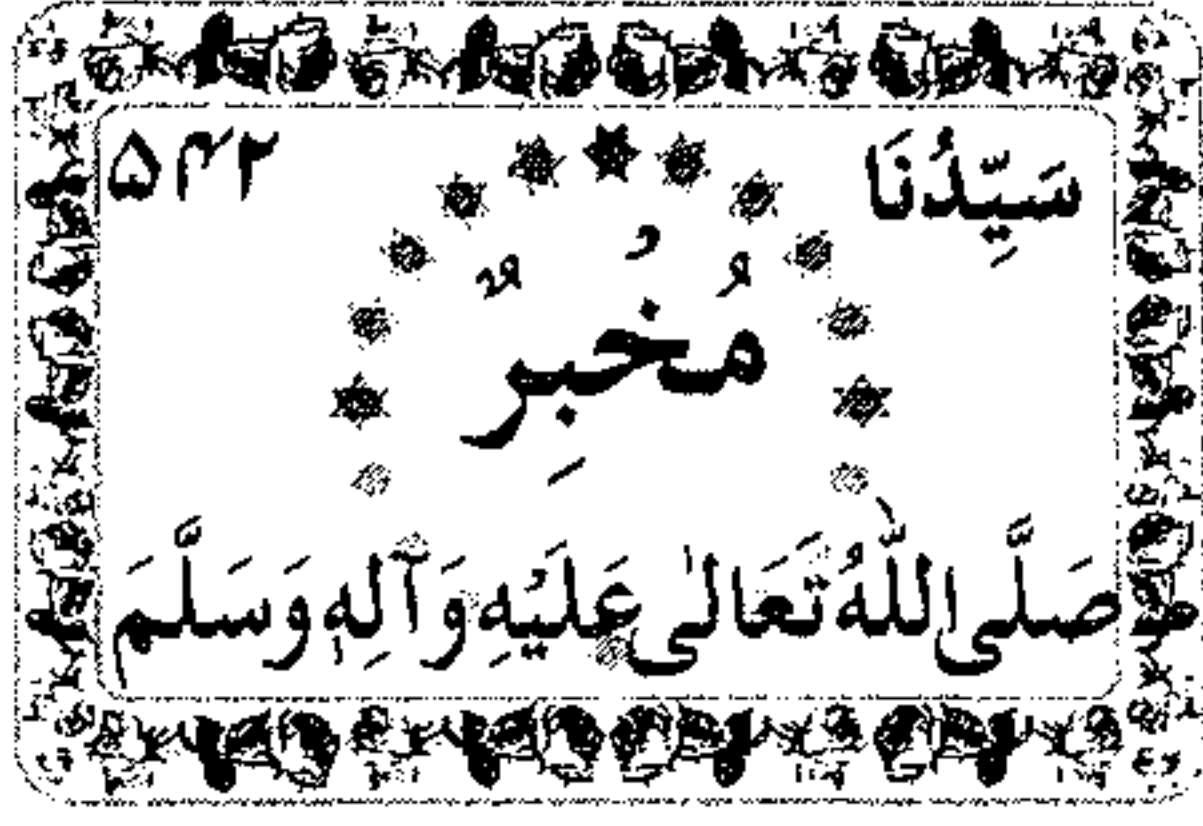 سَيِّدُنَا
۵۴۲
مُخْبِرٌ
صَلَّی اللّٰهُ تَعَالٰی عَلَيْهِ وَآلِهٖ وَسَلَّمَ